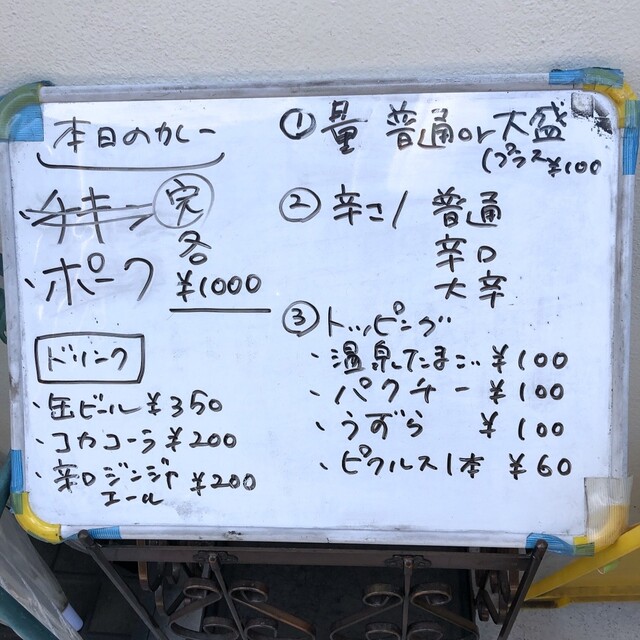 本日のカレー
・チキン 完
各
・ポーク ¥1000
ドリンク
・缶ビール ¥350
・コカコーラ ¥200
・辛口ジンジャエール ¥200
① 量 普通or大盛
(プラス¥100
② 辛さ 普通
辛口
大辛
③ トッピング
・温泉たまご ¥100
・パクチー ¥100
・うずら ¥100
・ピクルス1本 ¥60